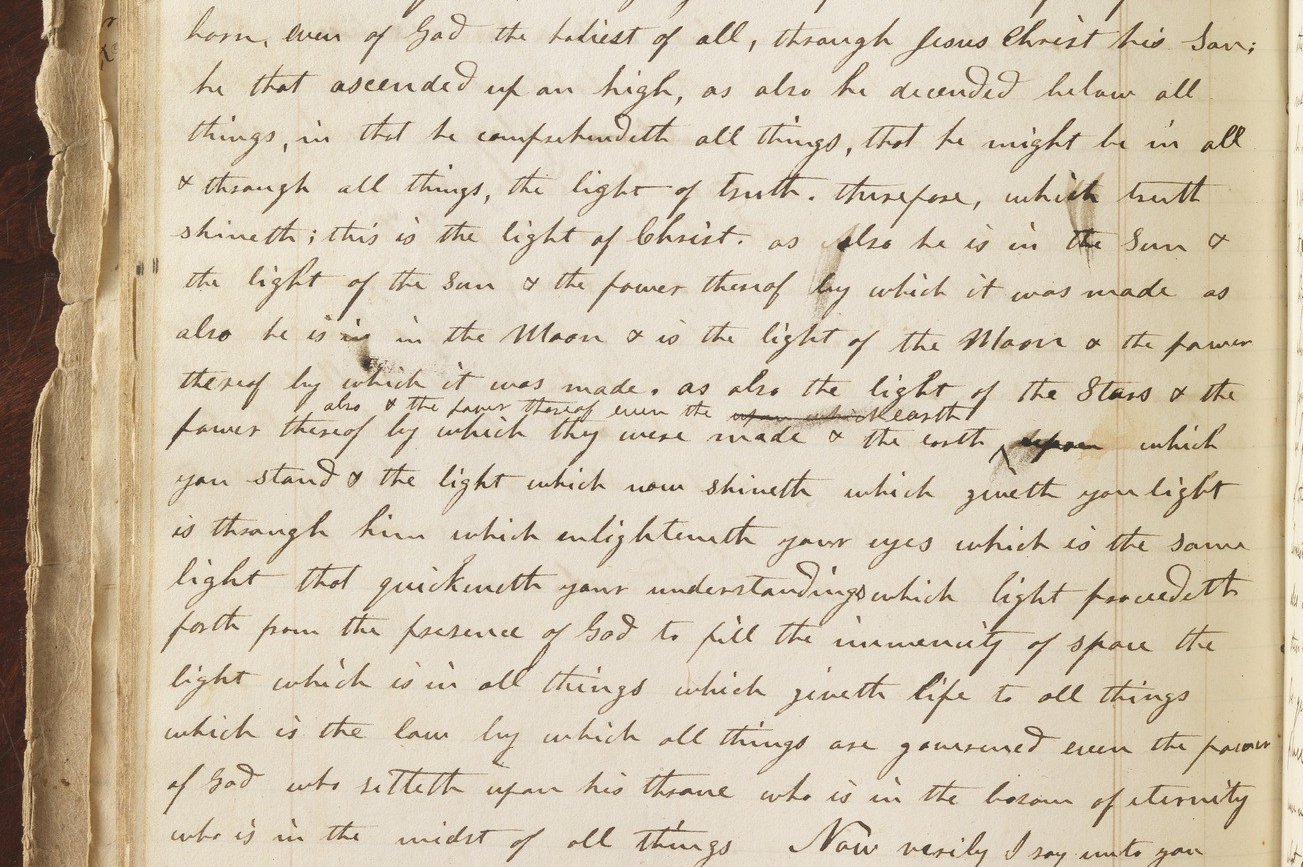 born, even of God the holiest of all, through Jesus Christ his Son;
he that ascended up on high, as also he decended below all
things, in that he comprehendeth all things, that he might be in all
& through all things, the light of truth. therefore, which truth
shineth; this is the light of Christ. as also he is in the Sun &
the light of the Sun & the power thereof by which it was made as
also he is is in the Moon & is the light of the Moon & the power
thereof by which it was made. as also the light of the Stars & the
also & the power thereof even the upon which earth
power thereof by which they were made & the earth upon which
you stand & the light which now shineth which giveth you light
is through him which enlighteneth your eyes which is the same
light that quickeneth your understandings which light procedeth
forth from the presence of God to fill the immencity of space the
light which is in all things which giveth life to all things
which is the law by which all things are governed even the power
of God who sitteth upon his throne who is in the bosom of eternity
who is in the midst of all things Now verily I say unto you